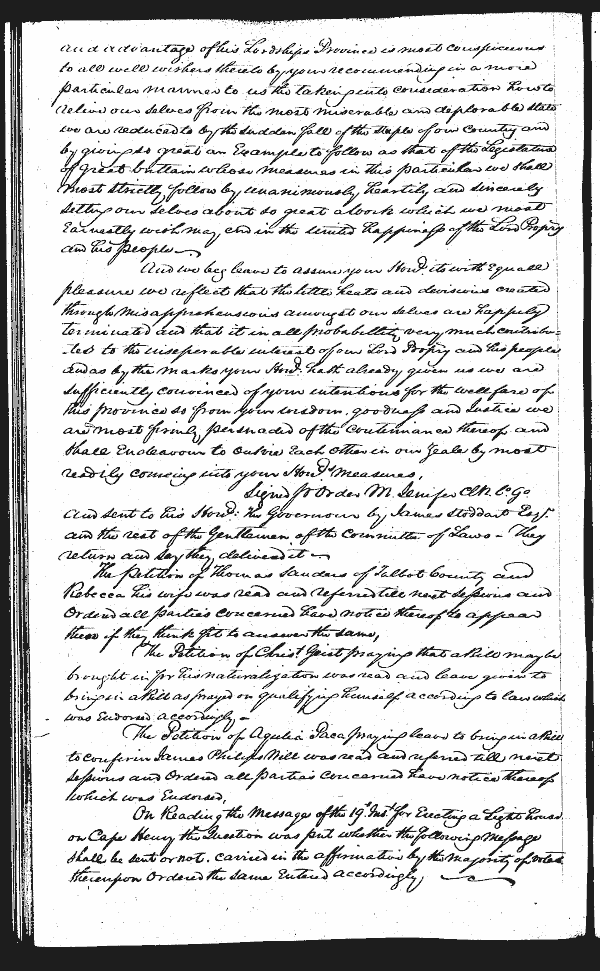 and advantage of his Lordships Province is most conspicuous
to all well wishers thereto by your recommending in a more
particular manner to us the taking into consideration how to
relieve our selves from the most miserable and deplorable state
we are reduced to by the sudden fall of the staple of our Country and
by giving so great an Example to follow as that of the Legislature
of great brittain whose measures in this particular we shall
most strictly follow by unanimously heartily and sincerely
setting our selves about so great a work which we most
Earnestly wish may end in the united happiness of the Lord Propry
and his people
And we beg leave to assure your Honr. its with Equall
pleasure we reflect that the little heats and devisions created
through misapprehensions amongst our selves are happily
terminated and that it in all probabillity very much contribu=
=ted to the inseperable interest of our Lord Propry and his people
and as by the marks your Honr. hath already given us we are
sufficiently convinced of your intentions for the wellfare of
this province so from your wisdom, goodness and Justice we
are most firmly persuaded of the continuance thereof and
shall Endeavour to outvie Each other in our Zeale by most
readily comeing into your Honrs. measures,
Signd p Order M. Jenifer Cl. Lo. Ho.
And sent to his Honr. the Governour by James Stoddart Esqr.
and the rest of the Gentlemen of the Committe of Laws - They
return and say they delivered it
The Petition of Thomas Sanders of Talbot County and
Rebecca his wife was read and referred till next sessions and
Ordered all parties concerned have notice thereof to appear
there if they think fit to answer the same,
The Petition of Christ. Geist praying that a bill may be
brought in for his naturalization was read and leave given to
bring in a bill as prayed on qualifying himself according to law which
was Endorsed accordingly -
The Petition of Aquila Paca praying leave to bring in a bill
to confirm James Philips Will was read and referred till next
sessions and Ordered all parties concerned have notice thereof
which was Endorsed,
On Reading the Message of the 19 Inst. for Erecting a Light house
on Cape Henry the Question was put whether the following Message
shall be sent or not, carried in the affirmative by the majority of votes
thereupon Ordered the same Entered accordingly,